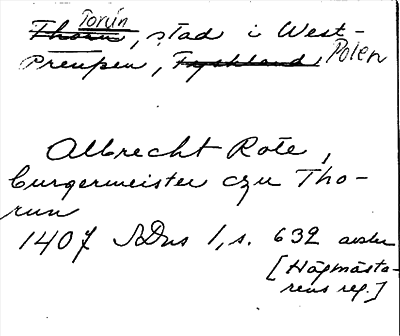 Torún
Thorn, stad i West-
Preuſsen, Tyskland, Polen
Albrecht Rote,
burgermeister czu Tho-
run
1407 SDns 1, s. 632
[Högmästa-
rens reg.]